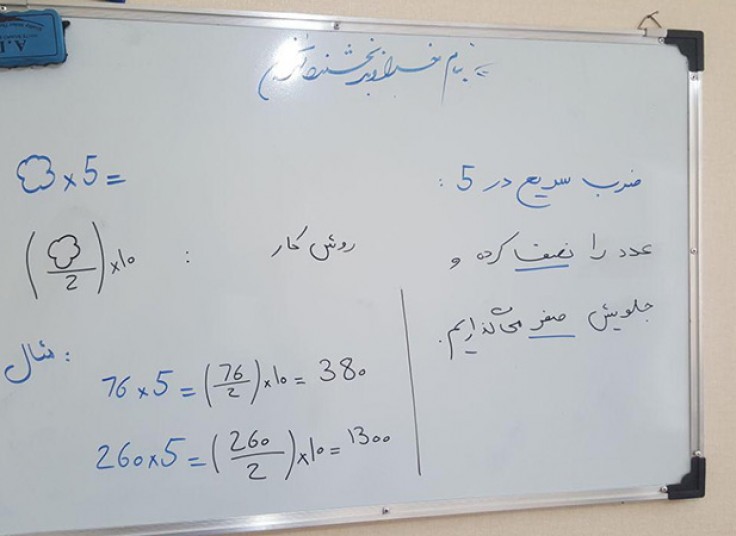 به نام خداوند بخشنده
ضرب سریع در 5 :
عدد را نصف کرده و
جلویش صفر می‌گذاریم.
×5=
روش کار :
( /2)×10
مثال :
76×5=(76/2)×10=380
260×5=(260/2)×10=1300